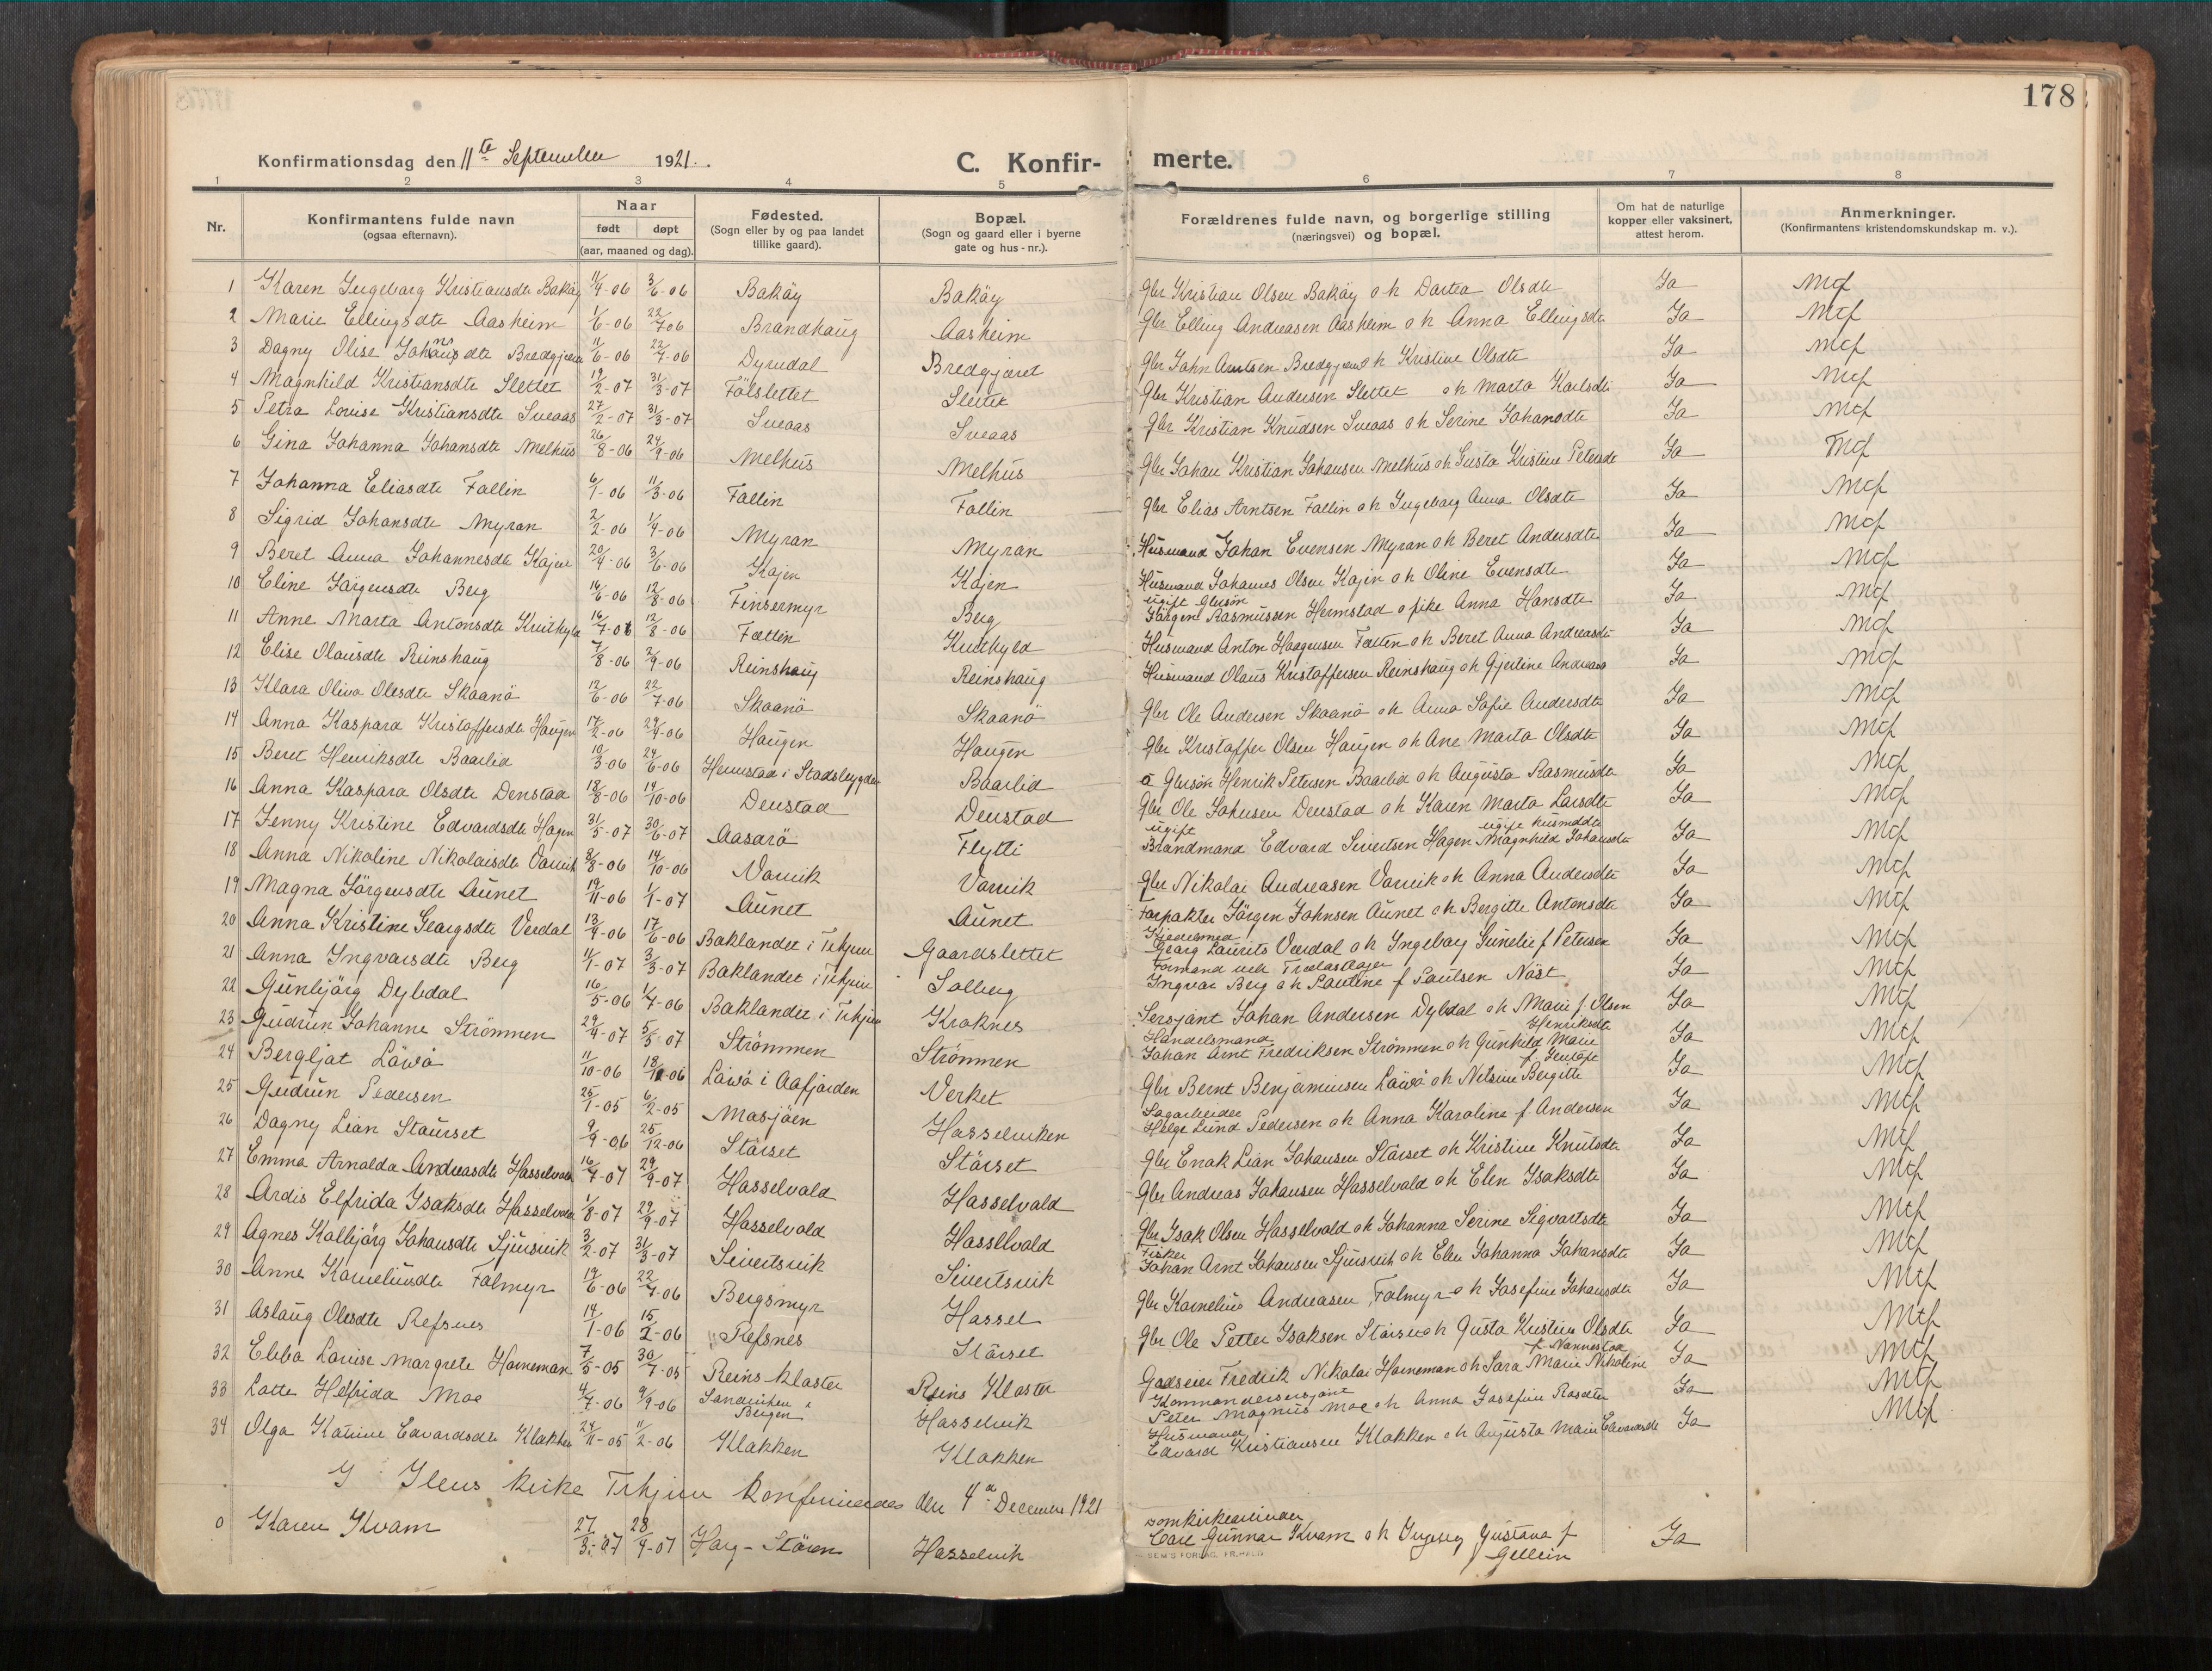 178
Konfirmationsdag den 11te September 1921.
C. Konfirmerte.
1 2 3 4 5 6 7 8
Nr. Konfirmantens fulde navn (ogsaa efternavn). Naar født døpt (aar, maaned og dag). Fødested. (Sogn eller by og paa landet tillike gaard). Bopæl. (Sogn og gaard eller i byerne gate og hus-nr.). Forældrenes fulde navn, og borgerlige stilling (næringsvei) og bopæl. Om hat de naturlige kopper eller vaksinert, attest herom. Anmerkninger. (Konfirmantens kristendomskundskap m. v.).
1 Karen Ingeborg Kristiansdtr Bakøy 11/4-06 3/6-06 Bakøy Bakøy Gbr Kristian Olsen Bakøy o h Dortea Olsdtr Ja Mcf
2 Marie Ellingsdtr Aasheim 1/6-06 22/7 06 Brandhaug Aasheim Gbr Elling Andreasen Aasheim o h Anna Ellingsdtr Ja Mcf
3 Dagny Olise Johansdtr Bredgjæret 11/6-06 22/7-06 Dyrudal Bredgjæret Gbr John Arntsen Bredgjæret o h Kristine Olsdtr Ja Mcf
4 Magnhild Kristiansdtr Slettet 19/2-07 31/3-07 Fölslettet Slettet Gbr Kristian Andersen Slettet o h Marta Karlsdtr Ja Mcf
5 Petra Louise Kristiansdtr Sveaas 27/2-07 31/3-07 Sveaas Sveaas Gbr Kristian Knudsen Sveaas o h Serine Johansdtr Ja Mcf
6 Gina Johanna Johansdtr Melhus 26/8-06 24/9-06 Melhus Melhus Gbr Johan Kristian Johansen Melhus o h Gusta Kristine Petersdtr Ja Mcf
7 Johanna Eliasdtr Fallin 6/1-06 11/3-06 Fallin Fallin Gbr Elias Arntsen Fallin o h Ingeborg Anna Olsdtr Ja Mcf
8 Sigrid Johansdtr Myran 2/2-06 1/4-06 Myran Myran Husmand Johan Evensen Myran o h Beret Andersdtr Ja Mcf
9 Beret Anna Johannesdtr Kojen 20/4-06 3/6-06 Kojen Kojen Husmand Johannes Olsen Kojen o h Oline Evensdtr Ja Mcf
10 Eline Jörgensdtr Berg 16/6-06 12/8-06 Finsermyr Berg ugift Gbrsön Jörgen Rasmussen Hermstad o pike Anna Hansdtr Ja Mcf
11 Anne Marta Antonsdtr Kvitkyld 16/7-06 12/8-06 Fætten Kvitkyld Husmand Anton Haagensen Fætten o h Beret Anna Andreasdtr Ja Mcf
12 Elise Olausdtr Reinshaug 7/8-06 2/9-06 Reinshaug Reinshaug Husmand Olaus Kristoffersen Reinshaug o h Gjertine Andreasd Ja Mcf
13 Klara Oliva Olesdtr Skaanö 12/6-06 22/7-06 Skaanö Skaanö Gbr Ole Andersen Skaanö o h Anna Sofie Andersdtr Ja Mcf
14 Anna Kaspara Kristoffersdtr Haugen 17/2-06 29/4-06 Haugen Haugen Gbr Kristoffer Olsen Haugen o h Ane Marta Olsdtr Ja Mcf
15 Beret Henriksdtr Baarlid 10/3-06 24/6-06 Hermstad i Stadsbygden Baarlid Gbrsön Henrik Petersen Baarlid o h Augusta Rasmusdtr Ja Mcf
16 Anna Kaspara Olsdtr Denstad 18/8-06 14/10-06 Denstad Denstad Gbr Ole Johnsen Denstad o h Karen Marta Larsdtr Ja Mcf
17 Jenny Kristine Edvardsdtr Hagen 31/5-07 30/6-07 Aasarö Flytti ugift Brandmand Edvard Sivertsen Hagen ugift Magnhild Johansdtr Ja Mcf
18 Anna Nikoline Nikolaisdtr Varvik 2/8-06 14/10-06 Varvik Varvik Gbr Nikolai Andreasen Varvik o h Anna Andersdtr Ja Mcf
19 Magna Jörgensdtr Aunet 19/11-06 1/1-07 Aunet Aunet Forpakter Jörgen Johnsen Aunet o h Bergitte Antonsdtr Ja Mcf
20 Anna Kristine Georgsdtr Verdal 13/4-06 17/6-06 Baklandet i Trhjem Gaardslettet Kjedelsmed Georg Laurits Verdal o h Ingeborg Gunelie f Petersen Ja Mcf
21 Anna Ingvarsdtr Berg 11/1-07 3/3-07 Baklandet i Trhjem Solberg Formand ved Trælastlager Ingvar Berg o h Pauline f Paulsen Nöst Ja Mcf
22 Gunbjörg Dybdal 16/5-06 1/7-06 Baklandet i Trhjem Kroknes Sersjant Johan Andersen Dybdal o h Marie f. Olsen Ja Mcf
23 Gudrun Johanne Strömmen 29/4-07 5/5-07 Strömmen Strömmen Handelsmand Johan Arnt Fredriksen Strömmen o h Gunhild Marie Henriksdtr Ja Mtf
24 Bergljot Lövö 11/10-06 18/10-06 Lövö i Aafjorden Verket Gbr Bernt Benjaminsen Lövö o h Nelsine Bergitte Ja Mcf
25 Gudrun Pedersen 25/1-05 6/2-05 Mosjöen Hasselviken Sagarbeider Helge Lund Pedersen o h Anna Karoline f. Andersen Ja Mtf
26 Dagny Lian Staurset 9/9-06 25/12-06 Störset Störset Gbr Enok Lian Johansen Störset o h Kristine Knutsdtr Ja Mtf
27 Emma Arnolda Andreasdtr Hasselvold 16/7-07 29/9-07 Hasselvold Hasselvold Gbr Andreas Johansen Hasselvold o h Elen Isaksdtr Ja Mtf
28 Ardis Elfrida Isaksdtr Hasselvold 1/8-07 29/9-07 Hasselvold Hasselvold Gbr Isak Olsen Hasselvold o h Johanna Serine Sigvartsdtr Ja Mcf
29 Agnes Kolbjörg Johansdtr Sjursvik 3/2-07 31/3-07 Sivertsvik Sivertsvik Fisker Johan Arnt Johansen Sjursvik o h Elen Johanna Johansdtr Ja Mtf
30 Anne Korneliusdtr Folmyr 19/6-06 22/7-06 Bergsmyr Hassel Gbr Kornelius Andreasen Folmyr o h Josefine Johansdtr Ja Mtf
31 Aslaug Olesdtr Refsnes 14/1-06 15/2-06 Refsnes Störset Gbr Ole Petter Isaksen Störset o h Gusta Kristine Olsdtr Ja Mtf
32 Ebba Louise Margrete Horneman 7/5-05 30/7-05 Reins kloster Reins Kloster Godseier Fredrik Nikolai Horneman o h Sara Marie Nikoline f. Nannestad Ja Mtf
33 Lotte Helfrida Moe 4/7-06 9/9-06 Sandviken i Bergen Hasselvik Kommandersersjant Peter Magnus Moe o h Anna Josefine Ja Mtf
34 Olga Katrine Edvardsdtr Klakken 24/11-05 11/2-06 Klakken Klakken Husmand Edvard Kristiansen Klakken o h Augusta Marie Edvardsdtr Ja Mtf
I Ilens kirke Trhjem Konfirmeredes den 4de December 1921
0 Karen Kvam 27/3-07 28/4-07 Horg-Stören Hasselvik Domkirkearbeider Carl Gunnar Kvam o h Ingeborg Gustava f Gellein Ja
SEM'S FORLAG, FR.HALD